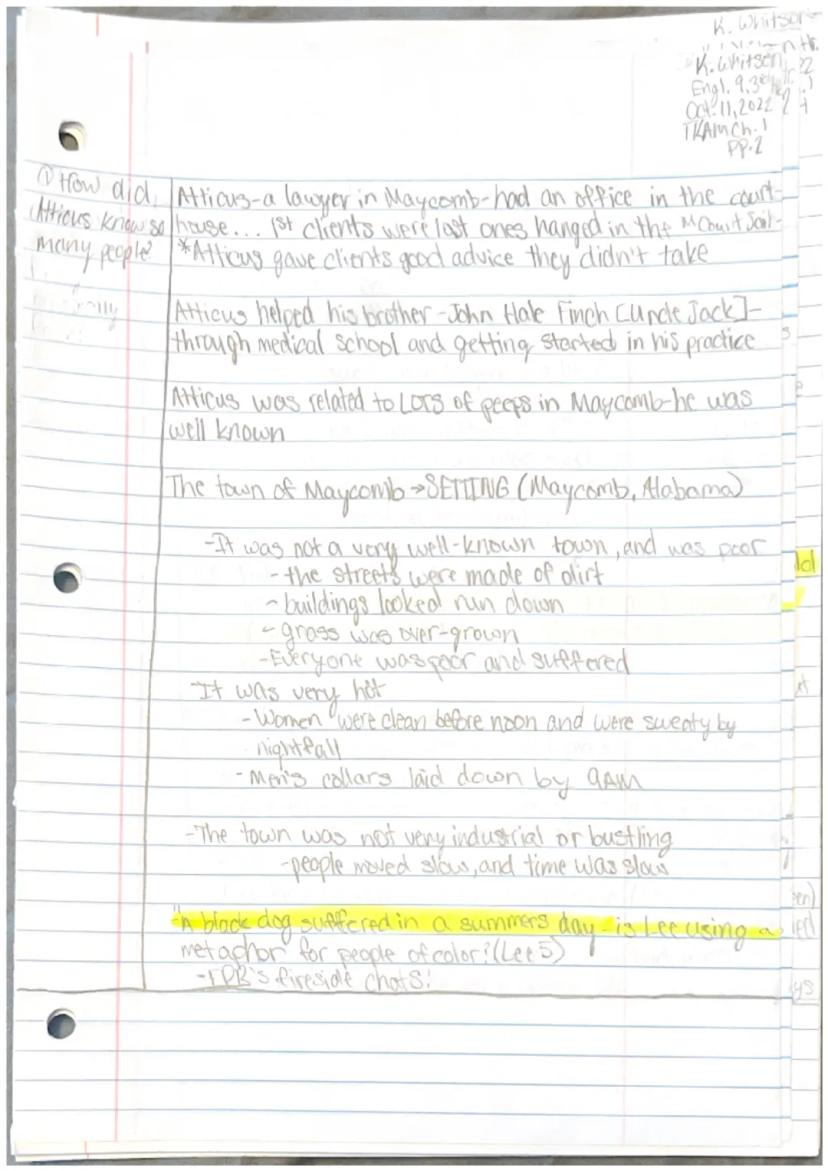 K. Whitsen
K. Whitsen
Engl. 9, 3rd Hr.
Oct. 11, 2022
TKAM Ch. 1
PP. 2
① How did
Atticus know so
many people?
Atticus-a lawyer in Maycomb-had an office in the court-
house... 1st clients were last ones hanged in the M Court Jail-
*Atticus gave clients good advice they didn't take
Atticus helped his brother -John Hale Finch [Uncle Jack]-
through medical school and getting started in his practice
Atticus was related to LOTS of peeps in Maycomb-he was
well known
The town of Maycomb → SETTING (Maycomb, Alabama)
-It was not a very well-known town, and was poor
- the streets were made of dirt
- buildings looked run down
- grass was over-grown
- Everyone was poor and suffered
-It was very hot
- Women were clean before noon and were sweaty by
nightfall
- Men's collars laid down by 9AM
-The town was not very industrial or bustling
-people moved slow, and time was slow
"A black dog suffered in a summers day - is Lee using a
metaphor for people of color? (Lee 5)
- FDR's fireside chats!